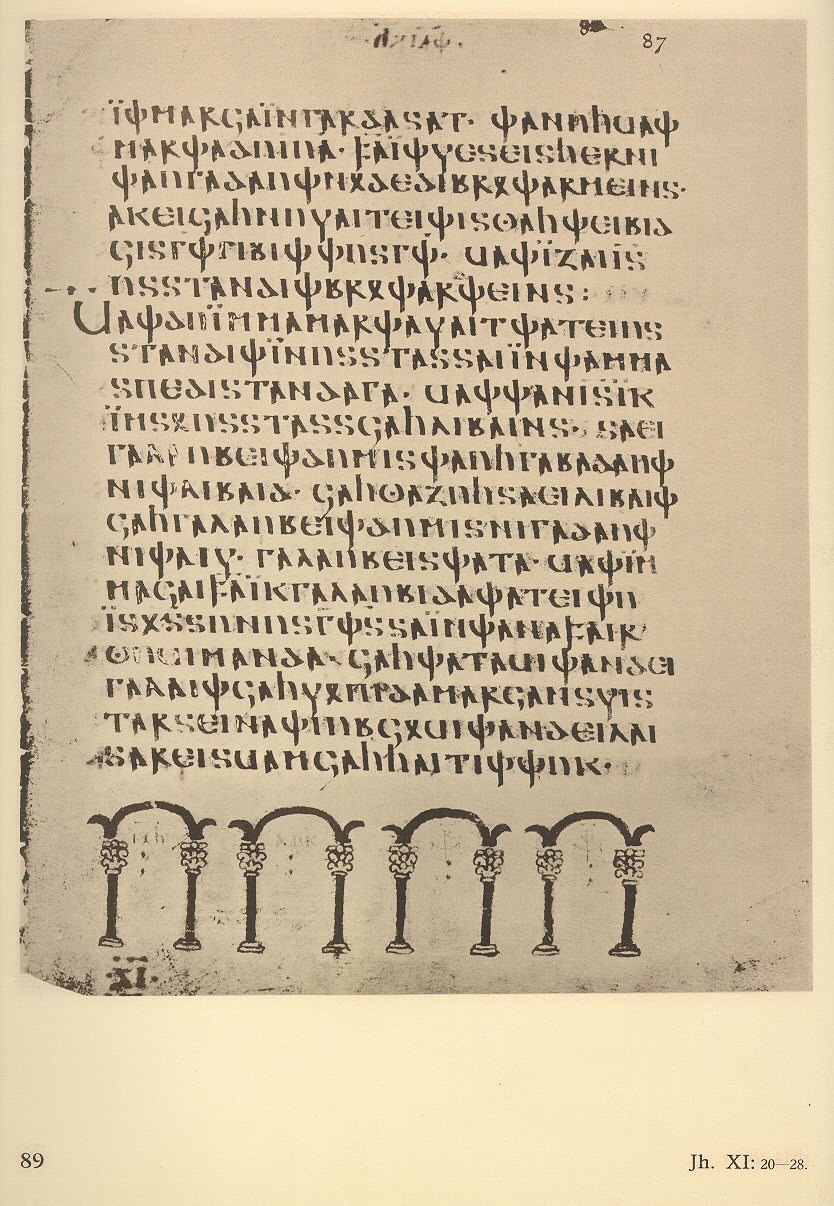 87
𐌹̈𐌸𐌼𐌰𐍂𐌾𐌰𐌹̈𐌽𐌲𐌰𐍂𐌳𐌰𐍃𐌰𐍄· 𐌸𐌰𐌽𐌿𐌷𐌵𐌰𐌸
𐌼𐌰𐍂𐌸𐌰𐌳𐌿𐌹̈𐌿𐌰· 𐍆𐌰̅𐌹̈𐌸𐍅𐌴𐍃𐌴𐌹𐍃𐌷𐌴𐍂𐌽𐌹
𐌸𐌰𐌿𐌲𐌰𐌳𐌰𐌿𐌸𐌽𐍉𐌳𐌴𐌳𐌹𐌱𐍂𐍉𐌸𐌰𐍂𐌼𐌴𐌹𐌽𐍃·
𐌰𐌺𐌴𐌹𐌾𐌰𐌷𐌽𐌿𐍅𐌰𐌹𐍄𐌴𐌹𐌸𐌹𐍃𐍈𐌰𐌷𐌸𐌴𐌹𐌱𐌹𐌳
𐌾𐌹𐍃𐌲̅𐌸̅𐌲𐌹𐌱𐌹𐌸𐌸𐌿𐍃𐌲̅𐌸̅· 𐌵𐌰𐌸𐌹̈𐌶𐌰𐌹𐌹̅𐍃̅
𐌿𐍃𐍃𐍄𐌰𐌽𐌳𐌹𐌸𐌱𐍂𐍉𐌸𐌰𐍂𐌸𐌴𐌹𐌽𐍃:
𐌵𐌰𐌸𐌳𐌿𐌹̈𐌼𐌼𐌰𐌼𐌰𐍂𐌸𐌰𐍅𐌰𐌹𐍄𐌸𐌰𐍄𐌴𐌹𐌿𐍃
𐍃𐍄𐌰𐌽𐌳𐌹𐌸𐌹̈𐌽𐌿𐍃𐍃𐍄𐌰𐍃𐍃𐌰𐌹𐌹̈𐌽𐌸𐌰𐌼𐌼𐌰
𐍃𐍀𐌴𐌳𐌹𐍃𐍄𐌰𐌽𐌳𐌰𐌲𐌰· 𐌵𐌰𐌸𐌸𐌰𐌽𐌹̅𐍃̅𐌹̈𐌺
𐌹̈𐌼𐍃𐍉𐌿𐍃𐍃𐍄𐌰𐍃𐍃𐌾𐌰𐌷𐌻𐌹𐌱𐌰𐌹𐌽𐍃· 𐍃𐌰𐌴𐌹
𐌲𐌰𐌻𐌰𐌿𐌱𐌴𐌹𐌸𐌳𐌿𐌼𐌹𐍃𐌸𐌰𐌿𐌷𐌲𐌰𐌱𐌰𐌳𐌰𐌿𐌸
𐌽𐌹𐌸𐌻𐌹𐌱𐌰𐌹𐌳· 𐌾𐌰𐌷𐍈𐌰𐌶𐌿𐌷𐍃𐌰𐌴𐌹𐌻𐌹𐌱𐌰𐌹𐌸
𐌾𐌰𐌷𐌲𐌰𐌻𐌰𐌿𐌱𐌴𐌹𐌸𐌳𐌿𐌼𐌹𐍃𐌽𐌹𐌲𐌰𐌳𐌰𐌿𐌸
𐌽𐌹𐌸𐌰𐌹𐍅· 𐌲𐌰𐌻𐌰𐌿𐌱𐌴𐌹𐍃𐌸𐌰𐍄𐌰· 𐌵𐌰𐌸𐌹̈𐌼
𐌼𐌰𐌾𐌰𐌹𐍆𐌰̅𐌹̈𐌺𐌲𐌰𐌻𐌰𐌿𐌱𐌹𐌳𐌰𐌸𐌰𐍄𐌴𐌹𐌸𐌿
𐌹̈𐍃𐍇̅𐍃̅𐍃𐌿𐌽𐌿𐍃𐌲̅𐌸̅𐍃̅𐍃𐌰𐌹̈𐌽𐌸𐌰𐌽𐌰𐍆𐌰𐌹𐍂
𐍈𐌿𐌵𐌹𐌼𐌰𐌽𐌳𐌰· 𐌾𐌰𐌷𐌸𐌰𐍄𐌰𐌵𐌹𐌸𐌰𐌽𐌳𐌴𐌹
𐌲𐌰𐌻𐌰𐌹𐌸𐌾𐌰𐌷𐍅𐍉𐍀𐌹𐌳𐌰𐌼𐌰𐍂𐌾𐌰𐌽𐍃𐍅𐌹𐍃
𐍄𐌰𐍂𐍃𐌴𐌹𐌽𐌰𐌸𐌹𐌿𐌱𐌾𐍉𐌵𐌹𐌸𐌰𐌽𐌳𐌴𐌹𐌻𐌰𐌹
𐍃𐌰𐍂𐌴𐌹𐍃𐌵𐌰𐌼𐌾𐌰𐌷𐌷𐌰𐌹𐍄𐌹𐌸𐌸𐌿𐌺·
·XI·
89
Jh. XI: 20—28.